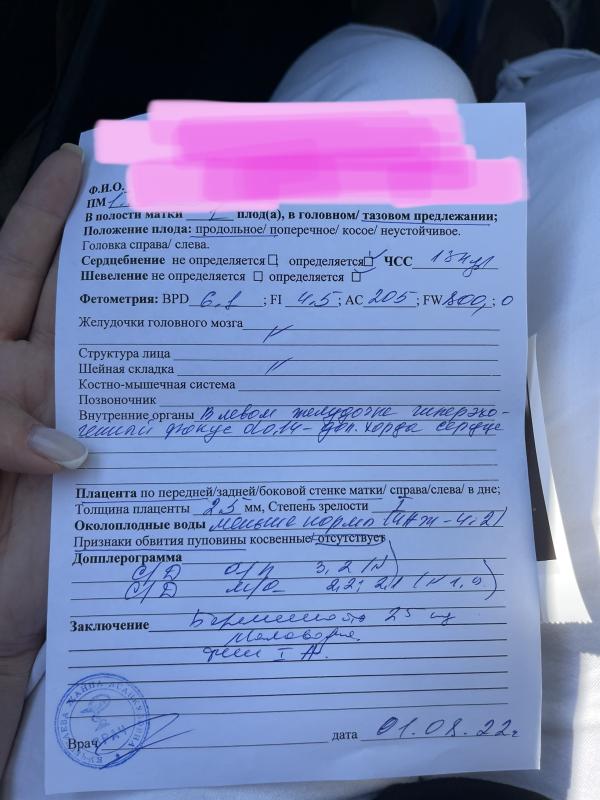 Ф.И.О.
ПМ 1.
В полости матки 1 плод(а), в головном/ тазовом предлежании;
Положение плода: продольное/ поперечное/ косое/ неустойчивое.
Головка справа/ слева.
Сердцебиение не определяется определяется ЧСС 134
Шевеление не определяется определяется
Фетометрия: BPD 6.8 ; FI 4.5 ; AC 205 ; FW 800, 0
Желудочки головного мозга
Структура лица
Шейная складка
Костно-мышечная система
Позвоночник
Внутренние органы В левом желудочке гиперэхо-
генный фокус d 0,14 - доп. хорда сердце
Плацента по передней/задней/боковой стенке матки/ справа/слева/ в дне;
Толщина плаценты 2.5 мм, Степень зрелости I
Околоплодные воды меньше нормы (ИАЖ - 4.2)
Признаки обвития пуповины косвенные/ отсутствует
Допплерограмма
С/Д 3,2 (N)
С/Д м/а 2,2; 2,1 (N 1,9)
Заключение Беременность 25 нед
Маловодие.
ФПН I А.
Врач дата 01.08.22г